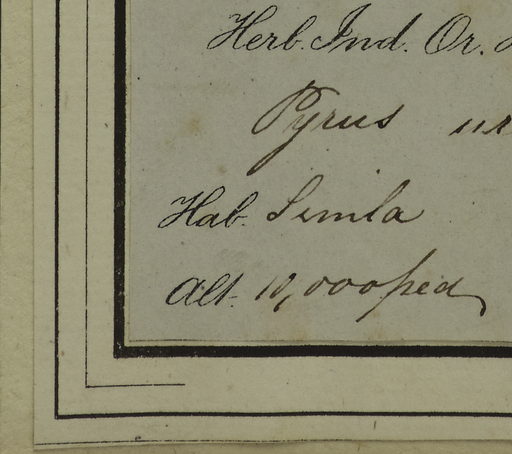 Herb. Ind. Or.
Pyrus
Hab. Simla
Alt. 10,000 ped